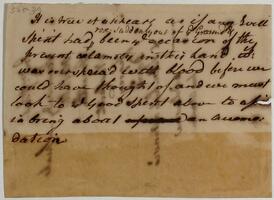 It is true it appears as if an Evil
Spirit had been ye occasion of the
present calamity in this Land it
was overspread with blood before we
could have thought of, and we must
look to ye Good Spirit above to assist
in bring about an accomo
dation